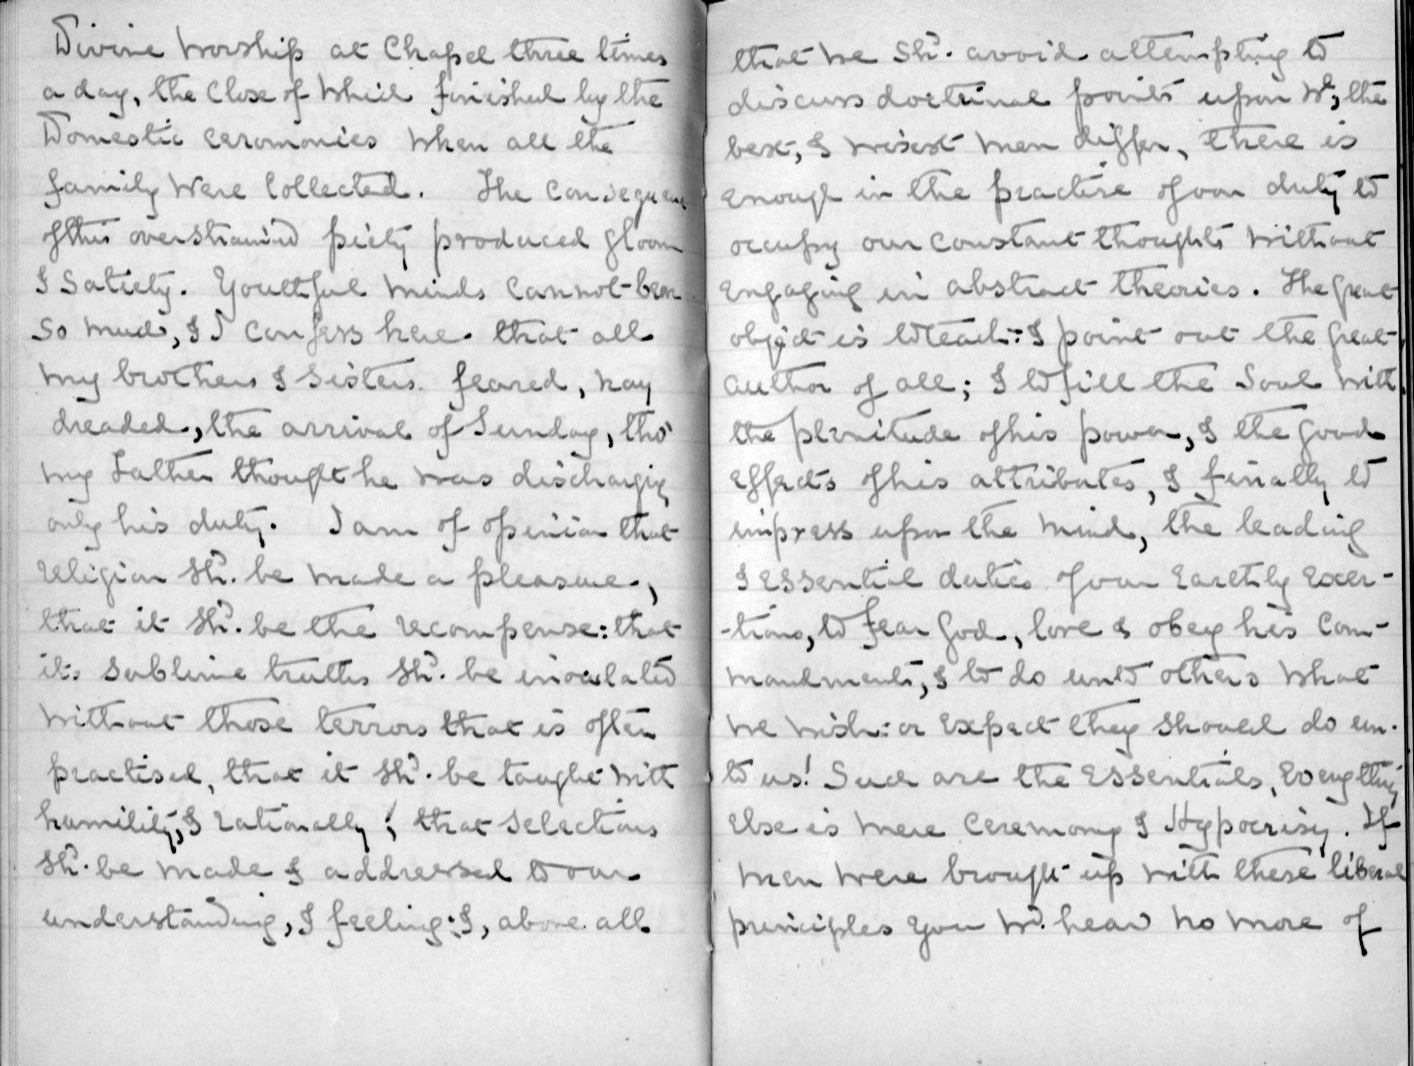 Divine Worship at Chapel three times
a day, the Close of Which finished by the
Domestic Ceremonies When all the
family Were Collected. The Consequence
of this overstrained piety produced gloom
& Satiety. Youthful Minds Cannot bear
So Much, & I Confess here that all
My brothers & Sisters feared, nay
dreaded, the arrival of Sunday, tho'
my Father thought he was discharging
only his duty. I am of opinion that
religion shd. be made a pleasure,
that it shd. be the recompense: that
its Sublime truths shd. be inoculated
Without those terrors that is often
practised, that it shd. be taught With
humility, & rationally; that Selections
shd. be made & addressed to our
understanding, & feeling: &, above all
that We shd. avoid attempting to
discuss doctrinal points upon Wh, the
best, & wisest Men differ, there is
Enough in the practise of our duty to
occupy our Constant thoughts Without
Engaging in abstract theories. The great
object is to teach: & point out the great
Author of all; & to fill the Soul With
the plenitude of his power, & the good
Effects of his attributes, & finally to
impress upon the Mind, the leading
& Essential duties of our Earthly Exer-
-tions, to fear God, love & obey his Com-
mandments, & to do unto others What
We Wish: or Expect they should do un-
to us! Such are the Essentials, Everything
Else is Mere Ceremony & Hypocrisy. If
Men Were brought up With these liberal
principles you Wd. hear No More of